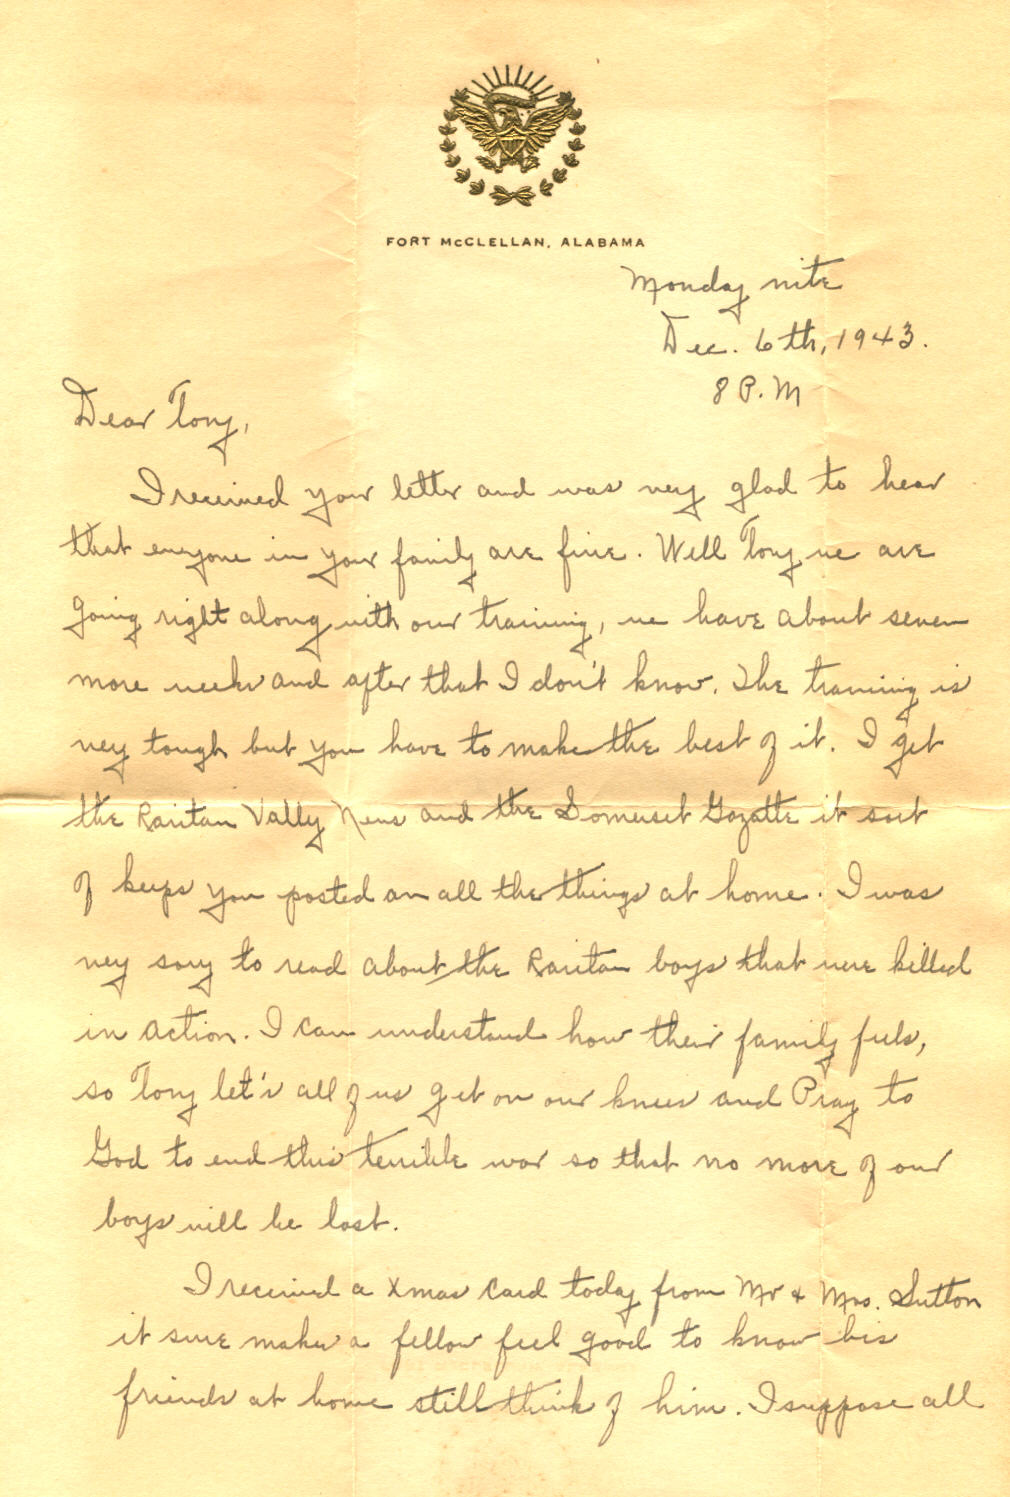 FORT McCLELLAN, ALABAMA
Monday nite
Dec. 6th, 1943.
8 P.M
Dear Tony,
I received your letter and was very glad to hear
that everyone in your family are fine. Well Tony we are
going right along with our training, we have about seven
more weeks and after that I don't know. The training is
very tough but you have to make the best of it. I get
the Raritan Vally News and the Somerset Gazatte it sort
of keeps you posted on all the things at home. I was
very sorry to read about the Raritan boys that were killed
in action. I can understand how their family feels,
so Tony let's all of us get on our knees and Pray to
God to end this terrible war so that no more of our
boys will be lost.
I received a Xmas card today from Mr & Mrs. Sutton
it sure makes a fellow feel good to know his
friends at home still think of him. I suppose all